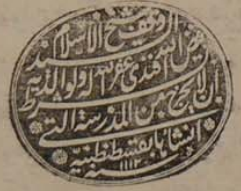 وقف شيخ الاسلام السيد
فيض الله افندي غفر الله له ولوالديه
بشرط ان لا يخرج من المدرسة التي
انشاها بقسطنطينية
سنة ١١١٢